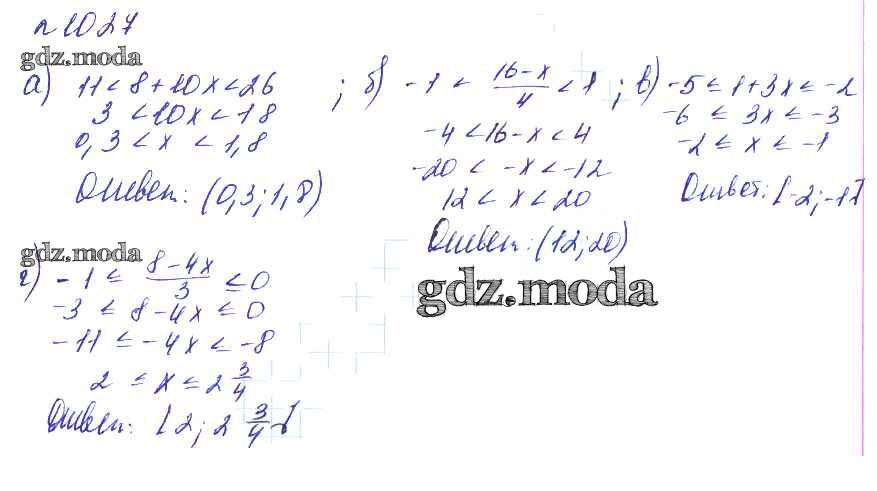 n 1027
gdz.moda
а) 11 < 8 + 10x < 26 ;
3 < 10x < 18
0,3 < x < 1,8
Ответ: (0,3; 1,8)
б) -1 < (16-x)/4 < 1 ;
-4 < 16-x < 4
-20 < -x < -12
12 < x < 20
Ответ: (12; 20)
в) -5 ≤ 1+3x ≤ -2
-6 ≤ 3x ≤ -3
-2 ≤ x ≤ -1
Ответ: [-2; -1]
gdz.moda
г) -1 ≤ (8-4x)/3 ≤ 0
-3 ≤ 8-4x ≤ 0
-11 ≤ -4x ≤ -8
2 ≤ x ≤ 2 3/4
Ответ: [2; 2 3/4]
gdz.moda